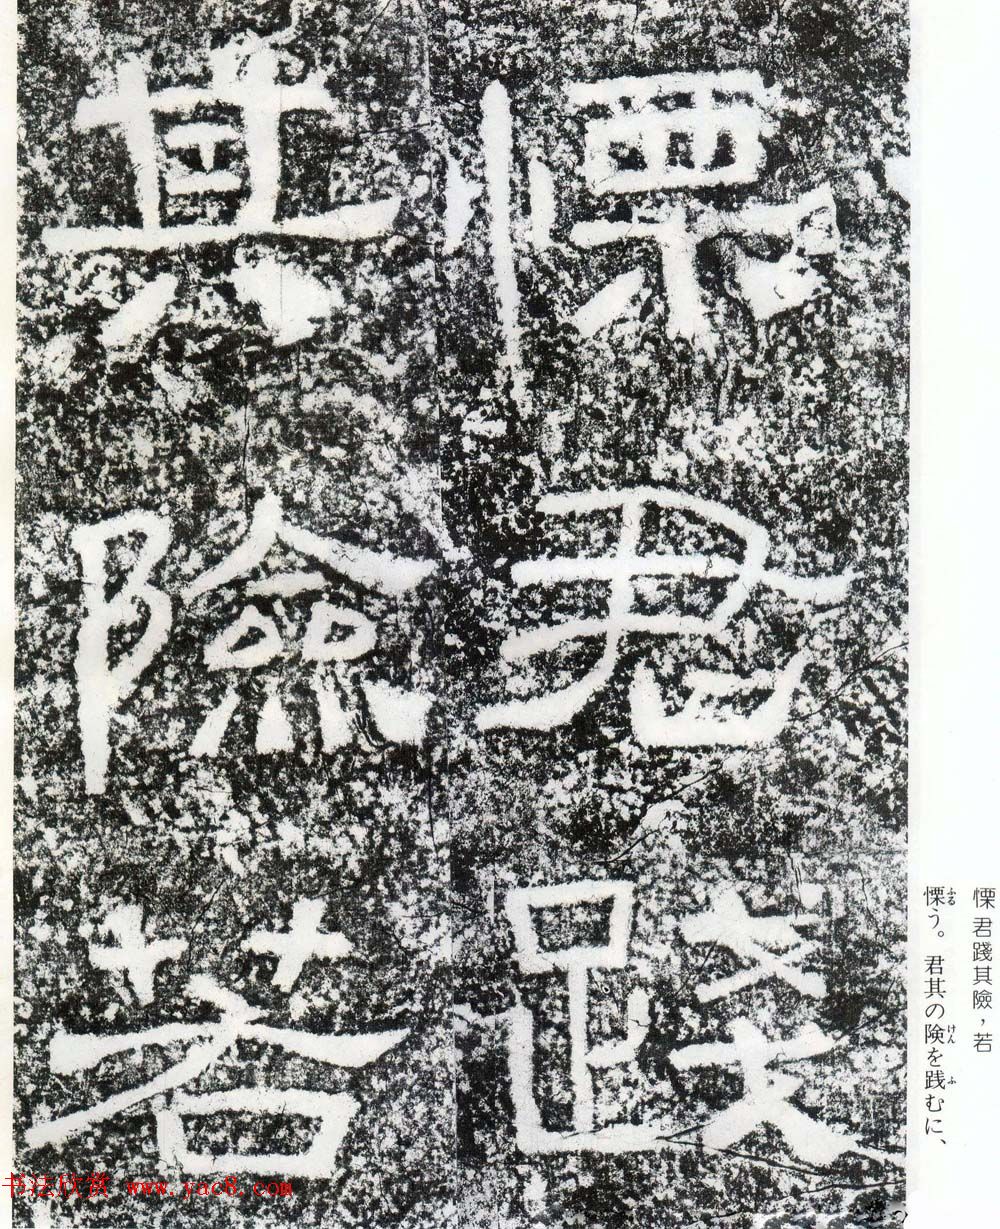 慄君踐
其險若
慄君踐其險，若
慄う。君其の険を践むに、
ふる
けん
ふ
书法欣赏 www.yac8.com